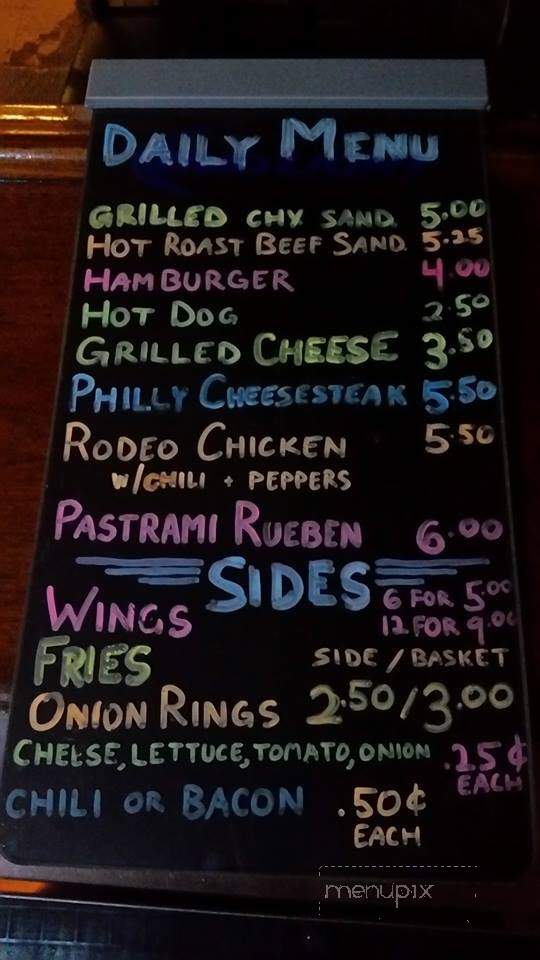 DAILY MENU
GRILLED CHX SAND. 5.00
HOT ROAST BEEF SAND. 5.25
HAMBURGER 4.00
HOT DOG 2.50
GRILLED CHEESE 3.50
PHILLY CHEESESTEAK 5.50
RODEO CHICKEN 5.50
W/CHILI + PEPPERS
PASTRAMI RUEBEN 6.00
SIDES
WINGS 6 FOR 5.00
12 FOR 9.00
FRIES SIDE / BASKET
ONION RINGS 2.50/3.00
CHEESE, LETTUCE, TOMATO, ONION .25¢
EACH
CHILI OR BACON .50¢
EACH
menupix